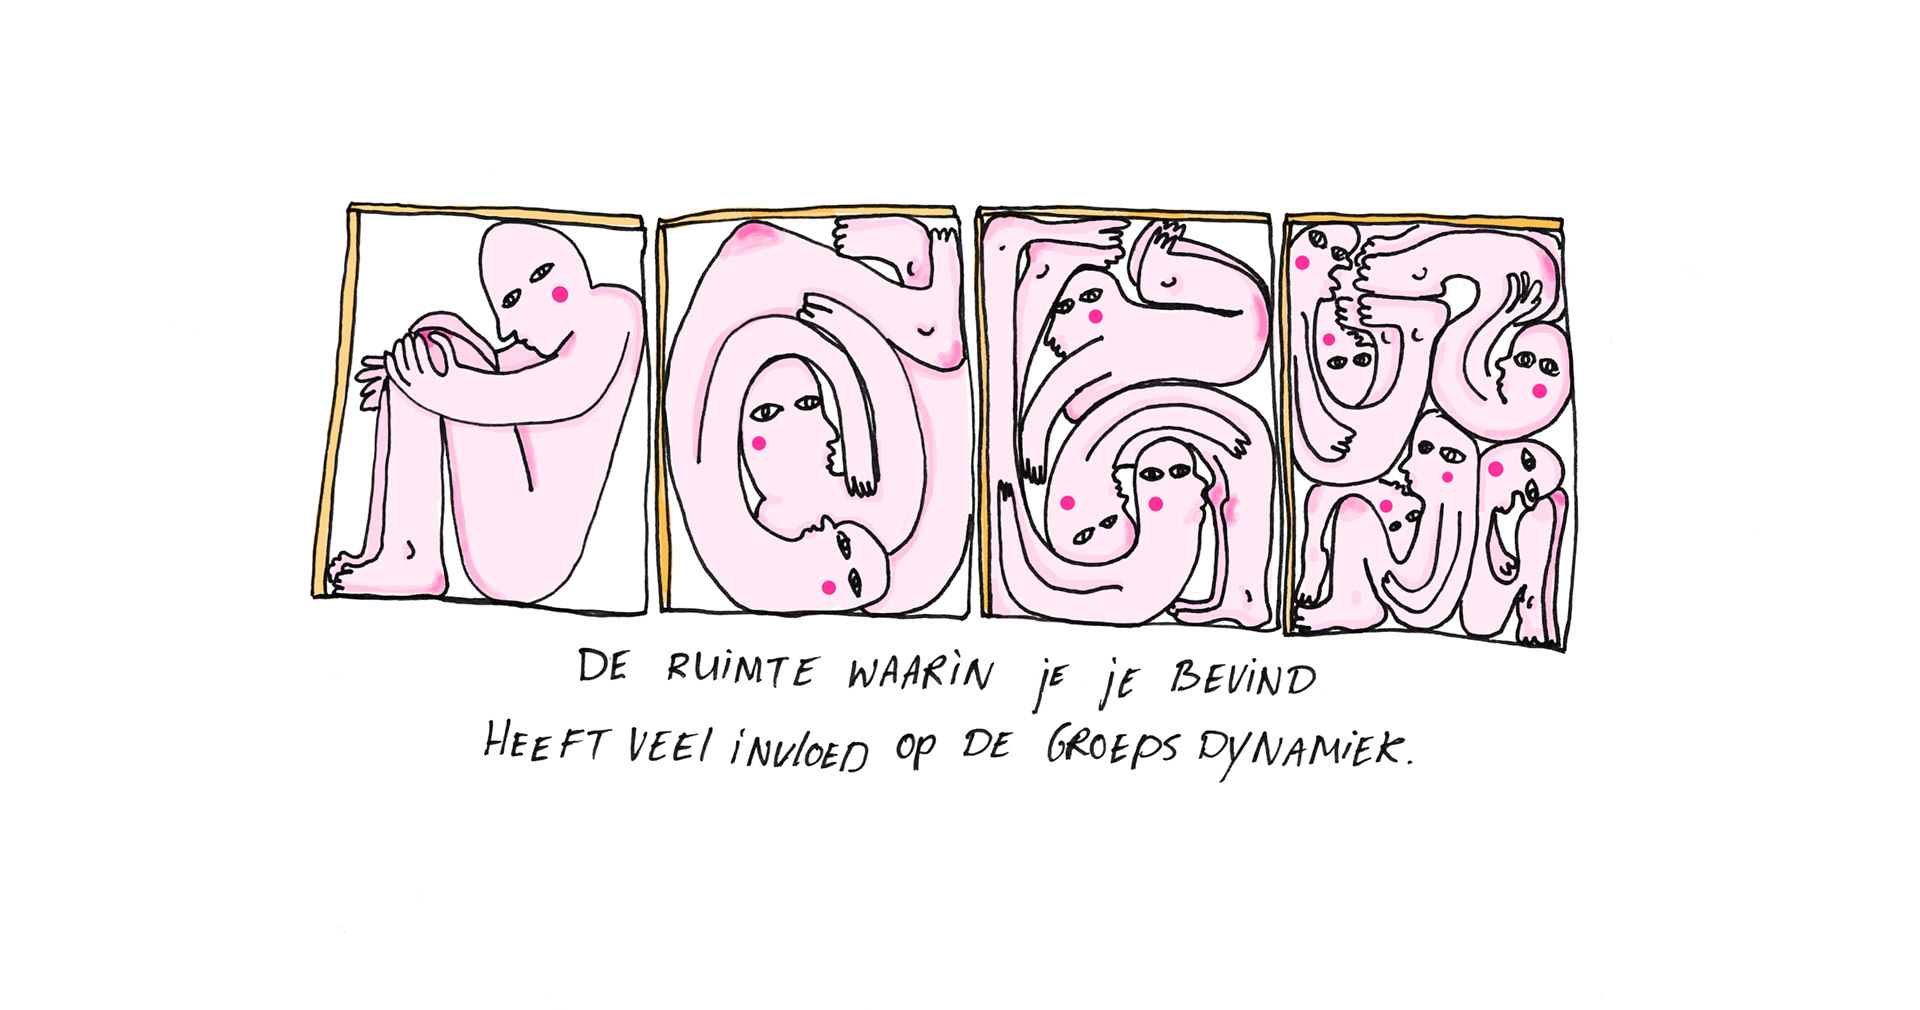 DE RUIMTE WAARIN JE JE BEVIND
HEEFT VEEL INVLOED OP DE GROEPS DYNAMIEK.